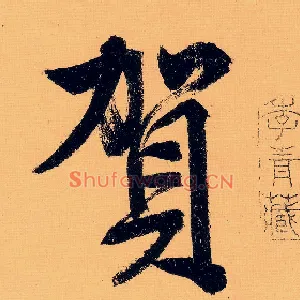 賀
ShufaWang.CN
李青藏